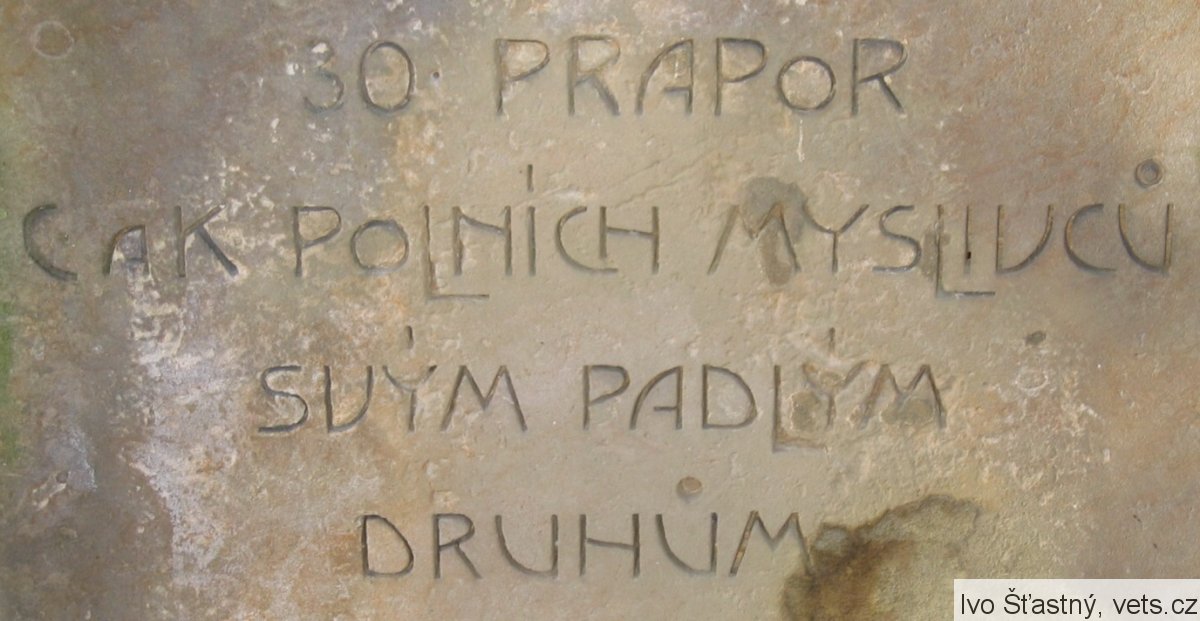 30 PRAPOR
CAK POLNÍCH MYSLIVCŮ
SVÝM PADLÝM
DRUHŮM
Ivo Šťastný, vets.cz